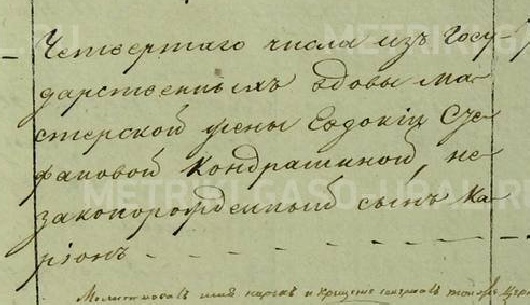 Четвертаго числа изъ Госу-
дарственныхъ вдовы ма-
стерской жены Евдокіи Сте-
фановой Кондрашиной, не
законорожденный сынъ Ка-
ріонъ
Молитвовалъ имя нарекъ и крещеніе совершалъ тотъ же